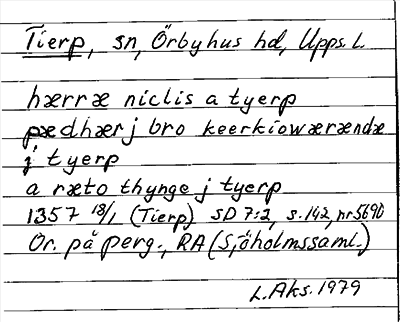 Tierp, sn, Örbyhus hd, Upps. L.
hærræ niclis a tyerp
pædhær j bro keerkiowærændæ
j tyerp
a ræto thynge j tyerp
1357 18/1 (Tierp) SD 7:2, s. 142, nr 5690
Or. på perg., RA (Sjöholmssaml.)
L. Aks. 1979